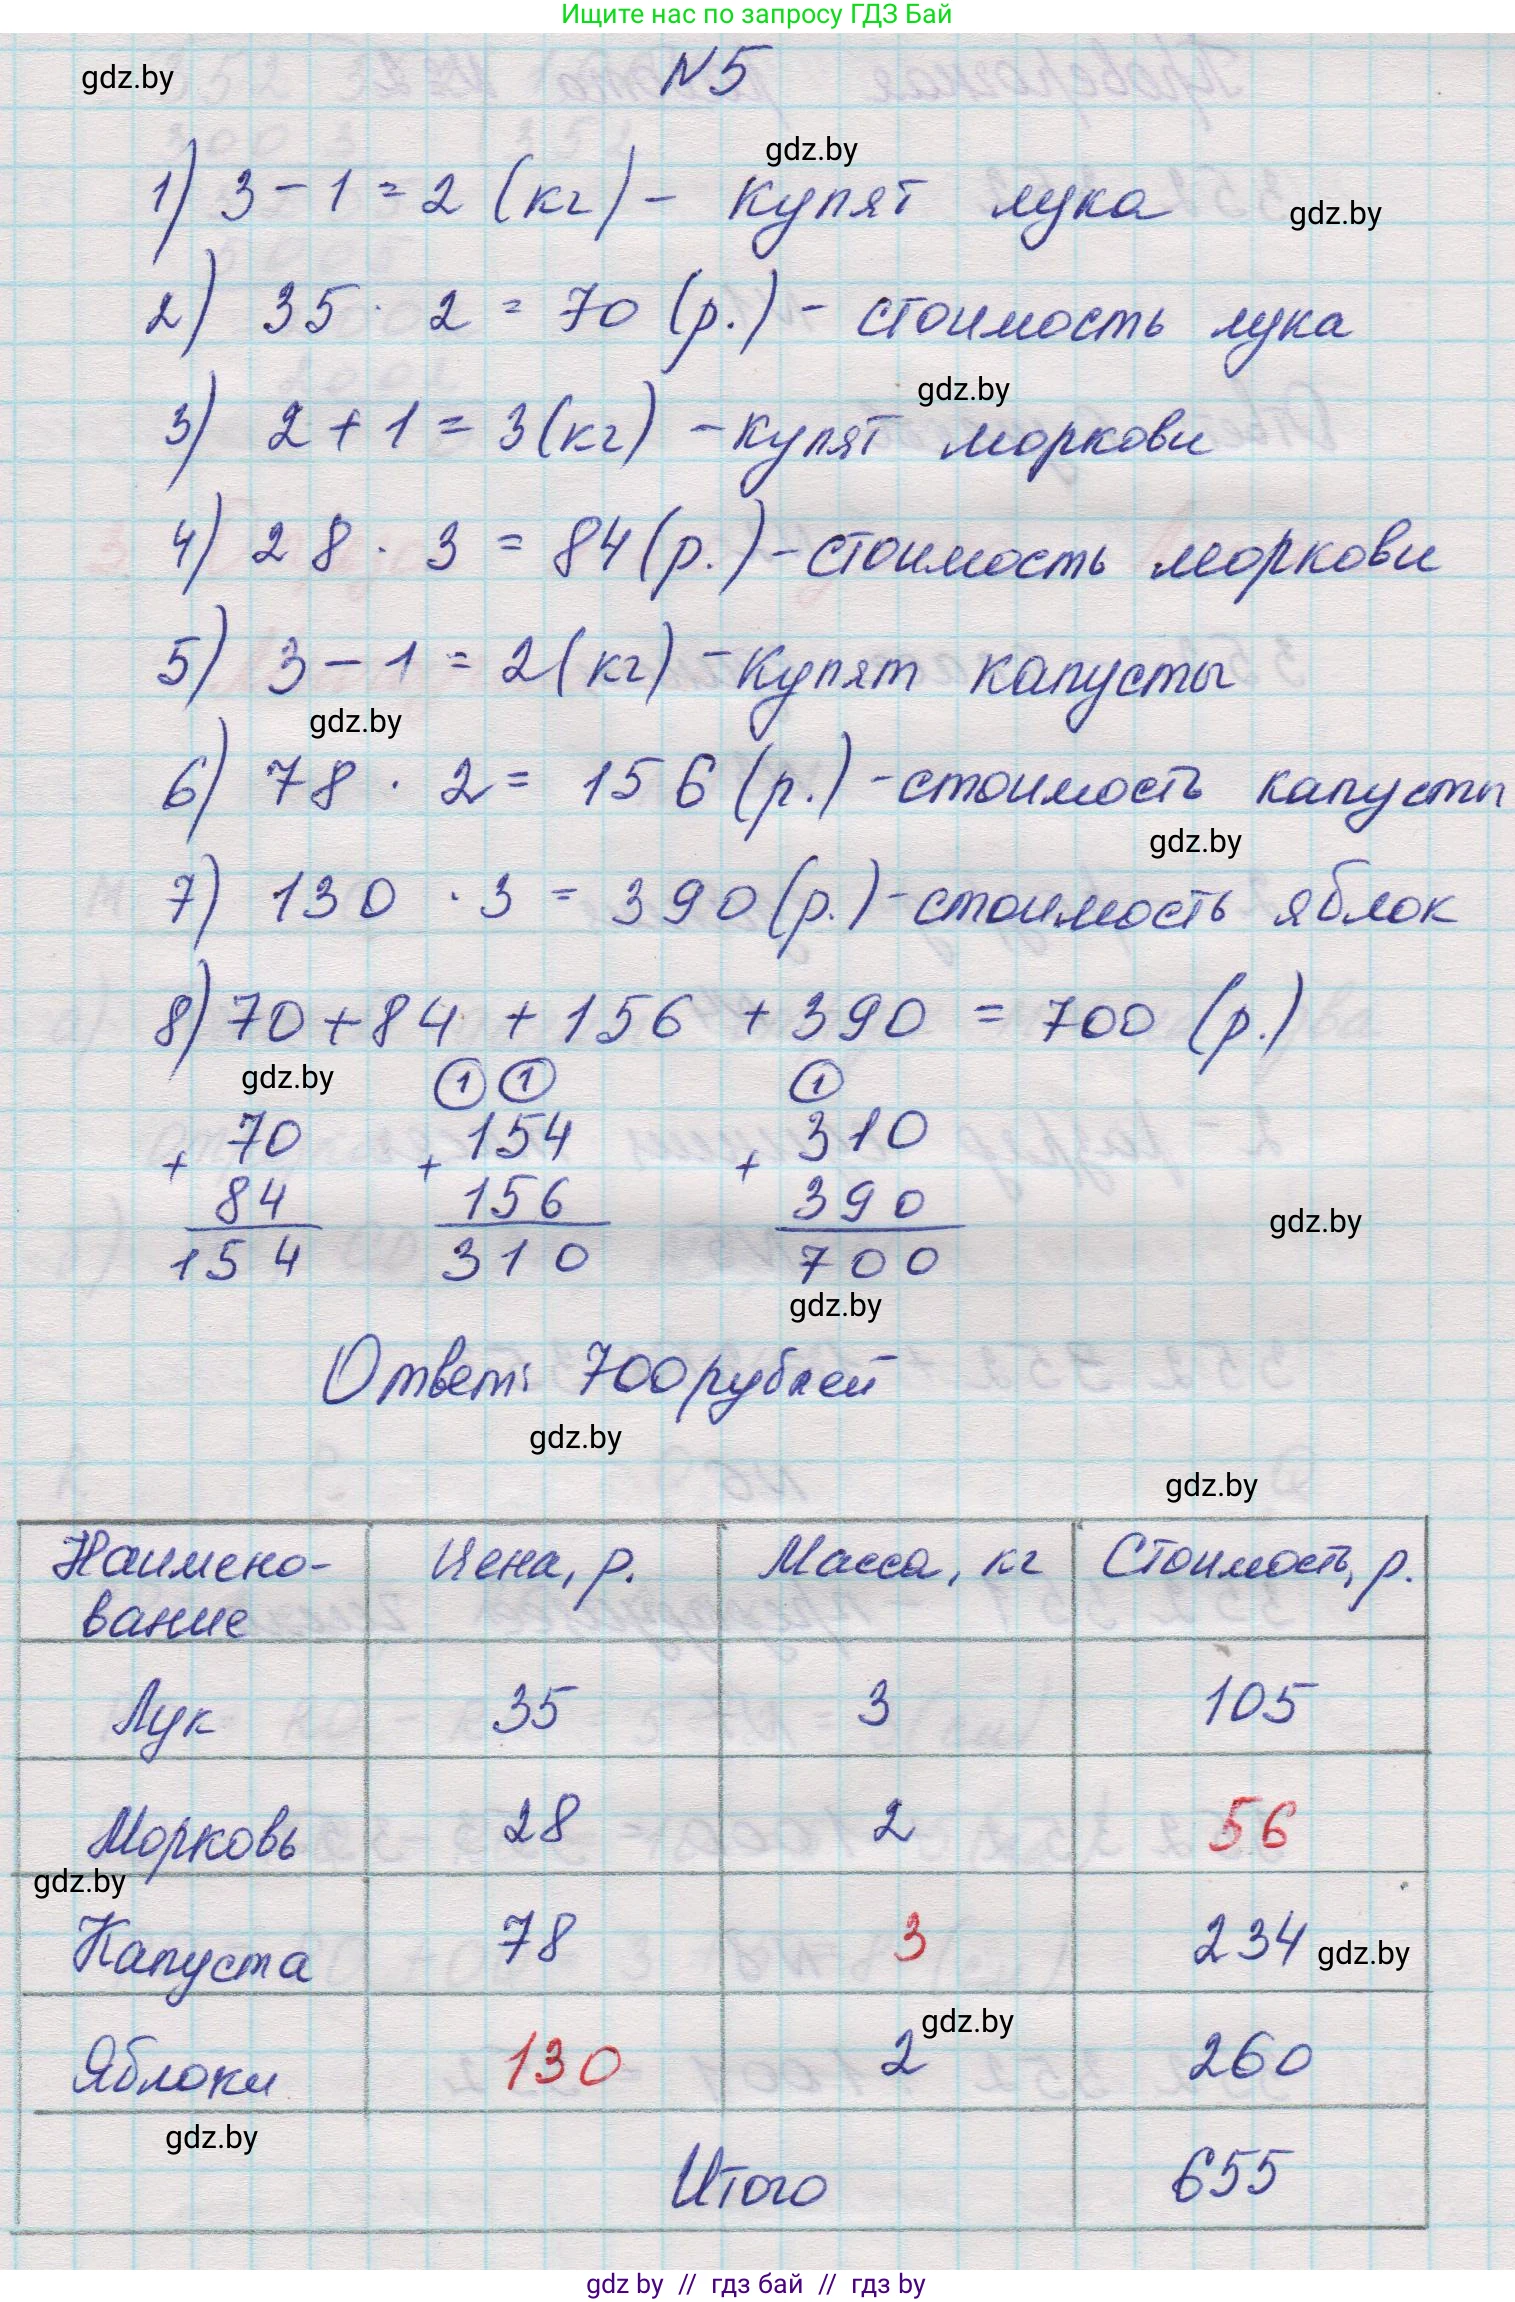 Ищите нас по запросу ГДЗ Бай
gdz.by
N5
gdz.by
1) 3 - 1 = 2 (кг) - купят лука
gdz.by
2) 35 · 2 = 70 (р.) - стоимость лука
gdz.by
3) 2 + 1 = 3 (кг) - купят моркови
4) 28 · 3 = 84 (р.) - стоимость моркови
5) 3 - 1 = 2 (кг) - купят капусты
gdz.by
6) 78 · 2 = 156 (р.) - стоимость капусты
gdz.by
7) 130 · 3 = 390 (р.) - стоимость яблок
8) 70 + 84 + 156 + 390 = 700 (р.)
gdz.by
1 1 1
70 154 310
+ + +
84 156 390
gdz.by
154 310 700
gdz.by
Ответ: 700 рублей
gdz.by
gdz.by
Наимено- Цена, р. Масса, кг Стоимость, р.
вание
Лук 35 3 105
Морковь 28 2 56
gdz.by
Капуста 78 3 234
gdz.by
gdz.by
Яблоки 130 2 260
gdz.by
Итого 655
gdz by // гдз бай // гдз by